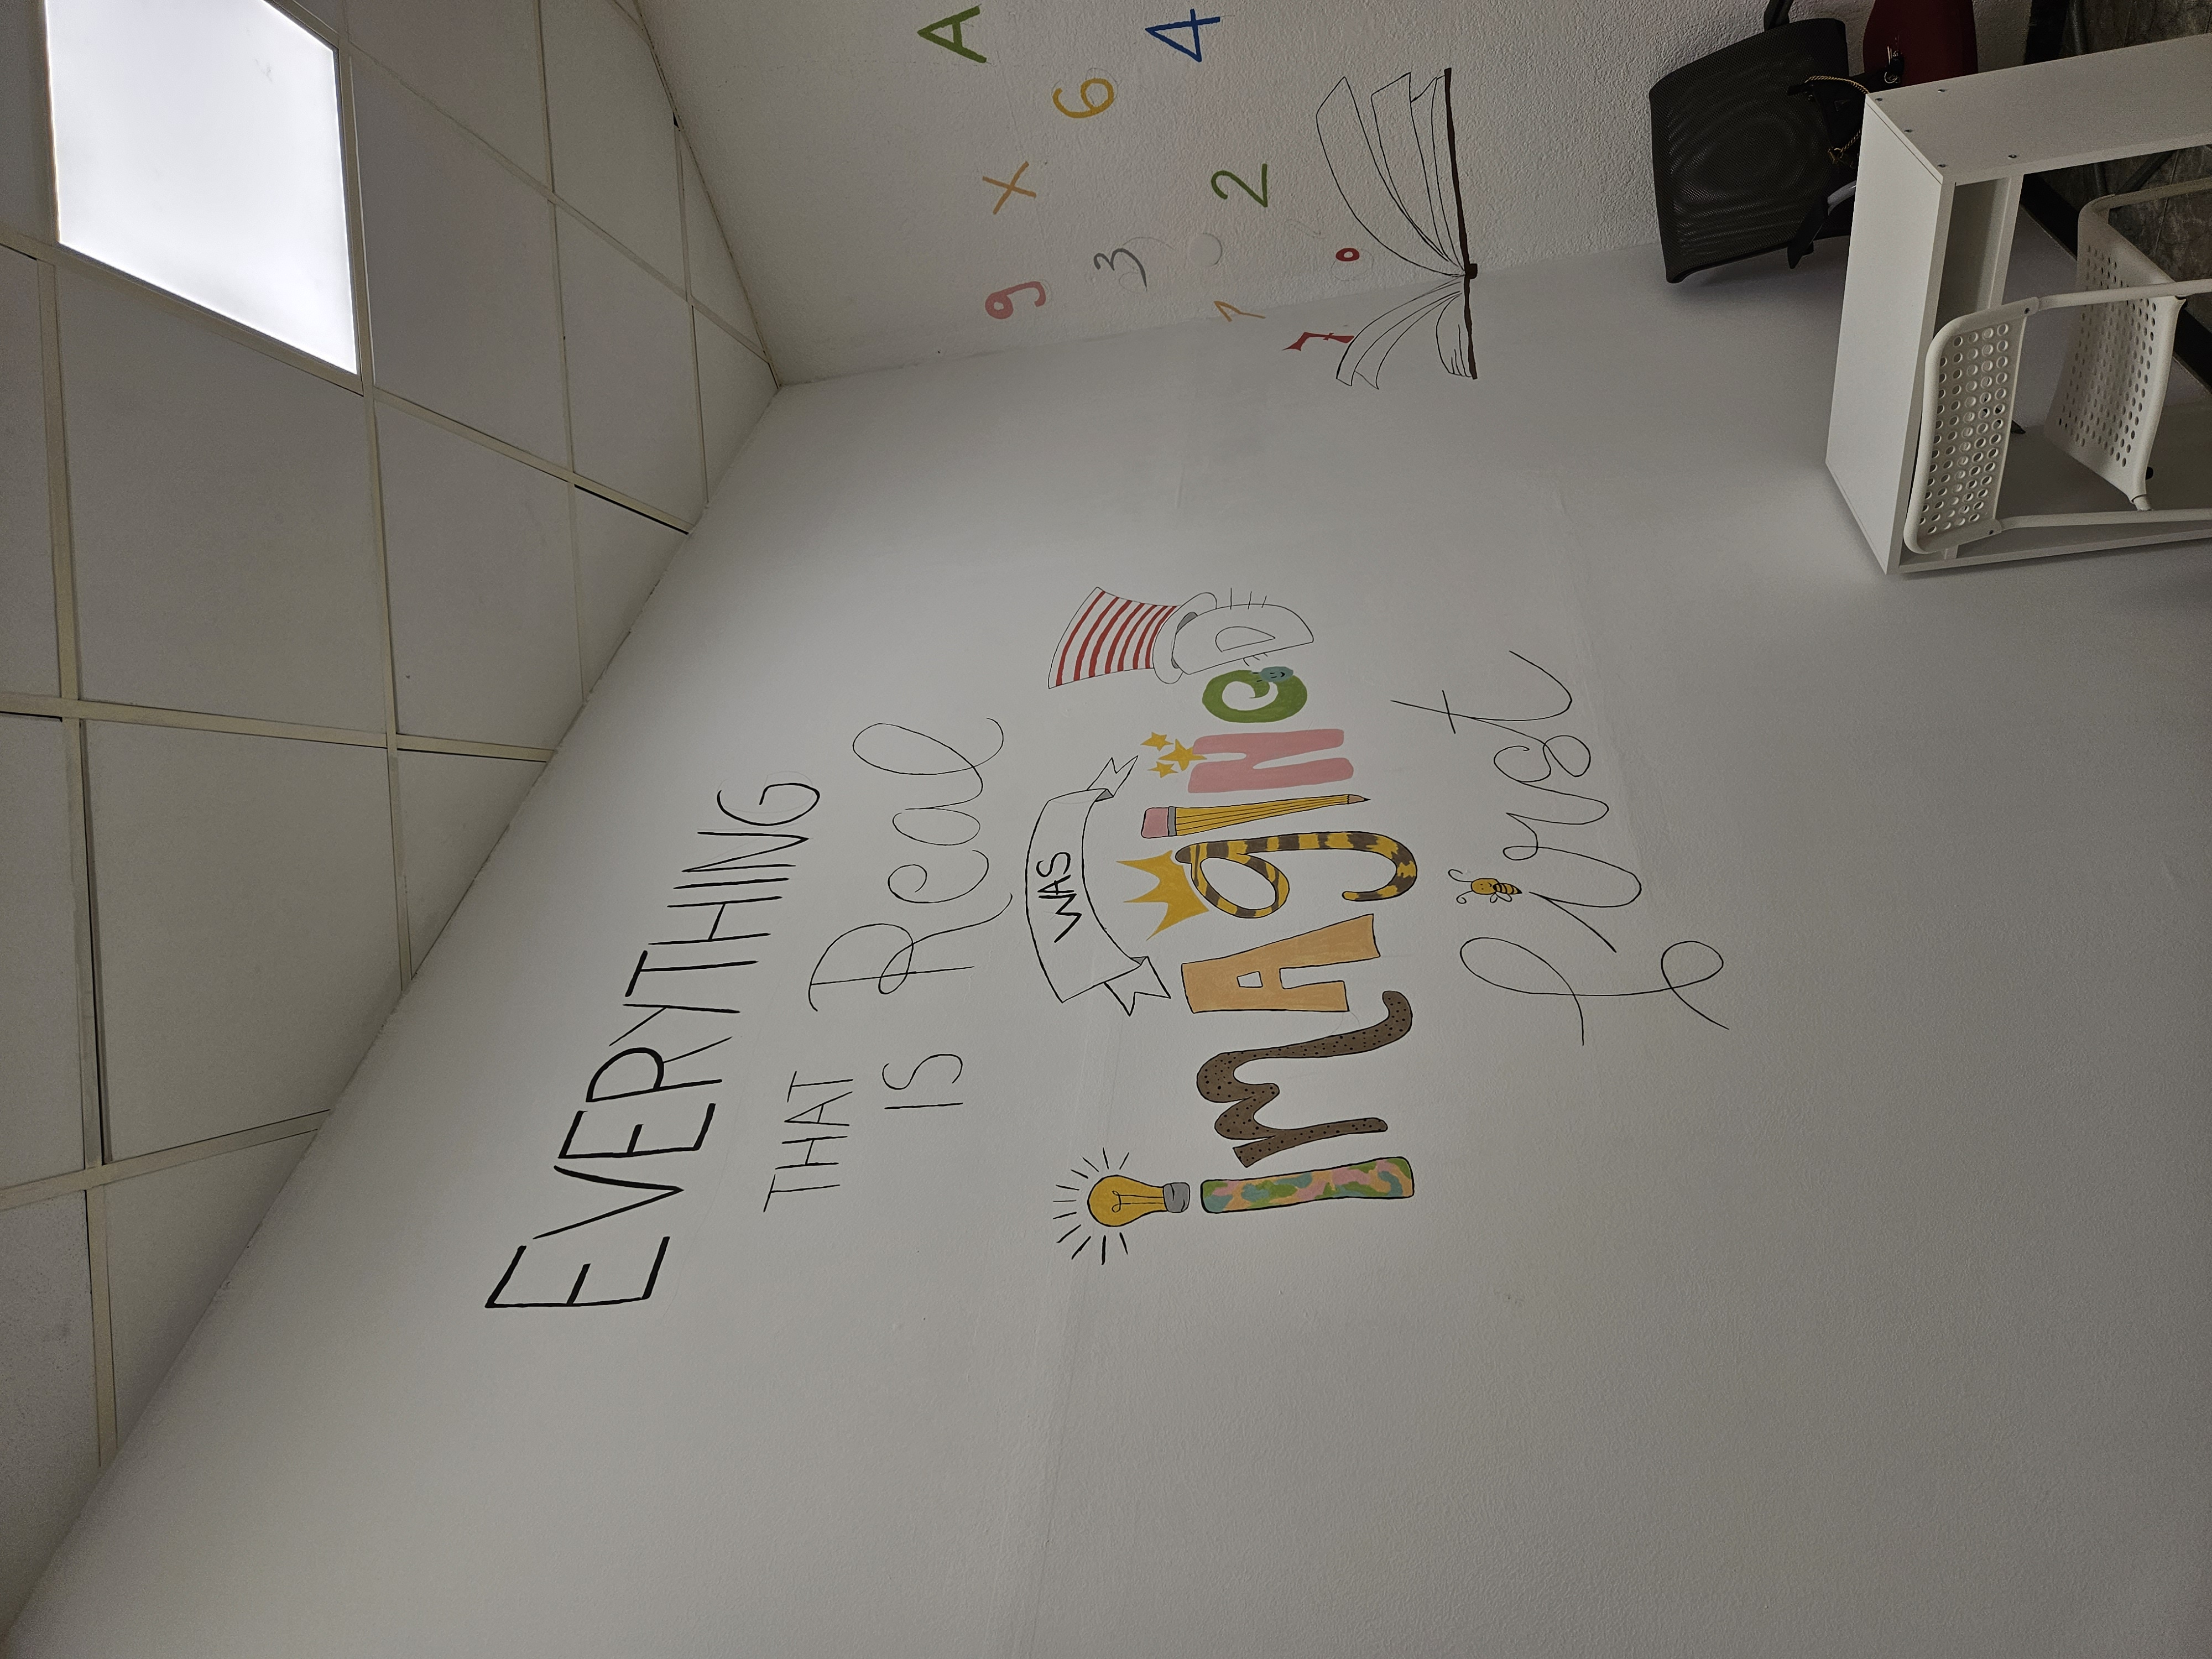 EVERYTHING
THAT
IS Real
WAS
imAgINeD
first
A
9 X
6
3
4
1 2
7
0